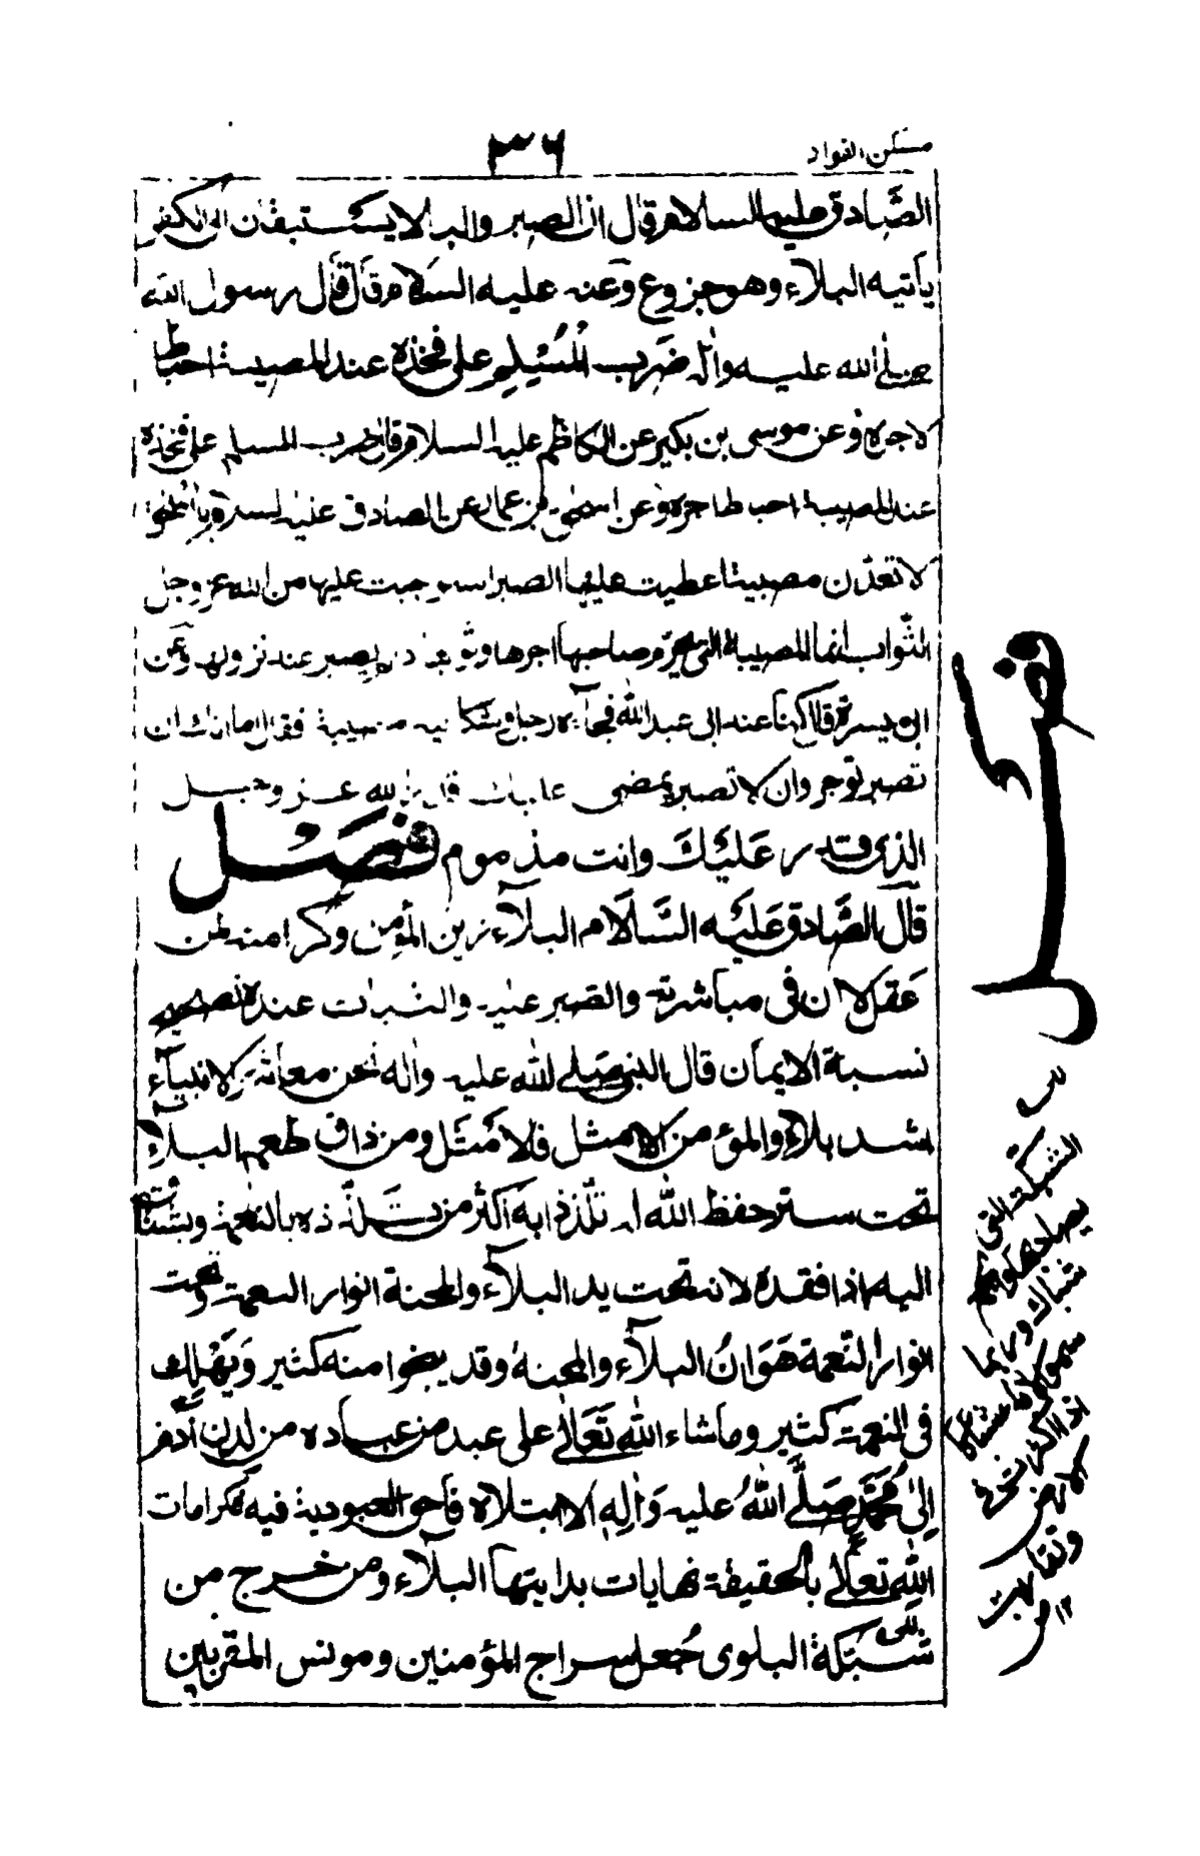 مسكن الفواد
٣٦
الصّادق عليه السلام قال ان الصبر والبلا يستبقان الى الكفر
يأتيه البلاء وهو جزوع وعنه عليه السّلام قال قال رسول الله
صلى الله عليه واله ضرب المُسْلِم على فخذه عند المصيبة احباط
لاجره وعن موسى بن بكير عن الكاظم عليه السلام قال ضرب المسلم على فخذه
عند المصيبة احباط اجره وعن اسحق بن عمار عن الصادق عليه السلام يا اسحق
لا تعدّن مصيبة اعطيت عليها الصبر واستوجبت عليها من الله عز وجل
الثّواب انما المصيبة التى يحرم صاحبها اجرها وثوابها اذا لم يصبر عند نزولها وعن
ابى ميسرة قال كنا عند ابى عبد الله فجآءه رجل وشكا اليه مصيبة فقال اما انك ان
تصبر توجر وان لا تصبر يمضى عليك قدر الله عز وجل
الذى قدر عَليْكَ وانت مذموم فصَل
قال الصَّادق عَليْه السَّلام البلآء زين المؤمن وكرامة لمن
عَقل لان فى مباشرته والصبر عليه والثبات عنده تصحيح
نسبة الايمان قال النبى صَلى الله عليه واله نحن معاشر الانبيآء
اشد بلاء والمؤمن الامثل فالامثل ومن ذاق طعم البلاء
تحت ستر حفظ الله له تلذذ به اكثر من تلذذه بالنعمة ويشتاق
اليه اذا فقده لان تحت يد البلآء والمحنة انوار النعمة وتحت
انوار النّعمة هَوَانُ البلآء والمحنة وقد ينجوا منه كثير وَيَهْلِك
فى النعمة كثير وما شاء الله تَعَالى على عبد من عباده من لدن آدم
اِلىٰ مُحَمَّدٍ صَلَّى اللهُ عليه وَاٰلِهِ الا ابتلاه فاحق العبودية فيه فكرامات
الله تعالى بالحقيقة نهايات بدايتها البلآء ومن خرج من
شبكة البلوى جُعل سراج المؤمنين ومونس المقربين
فصل
الشبكة التى
يصاد بها
شباك وربما
١٢